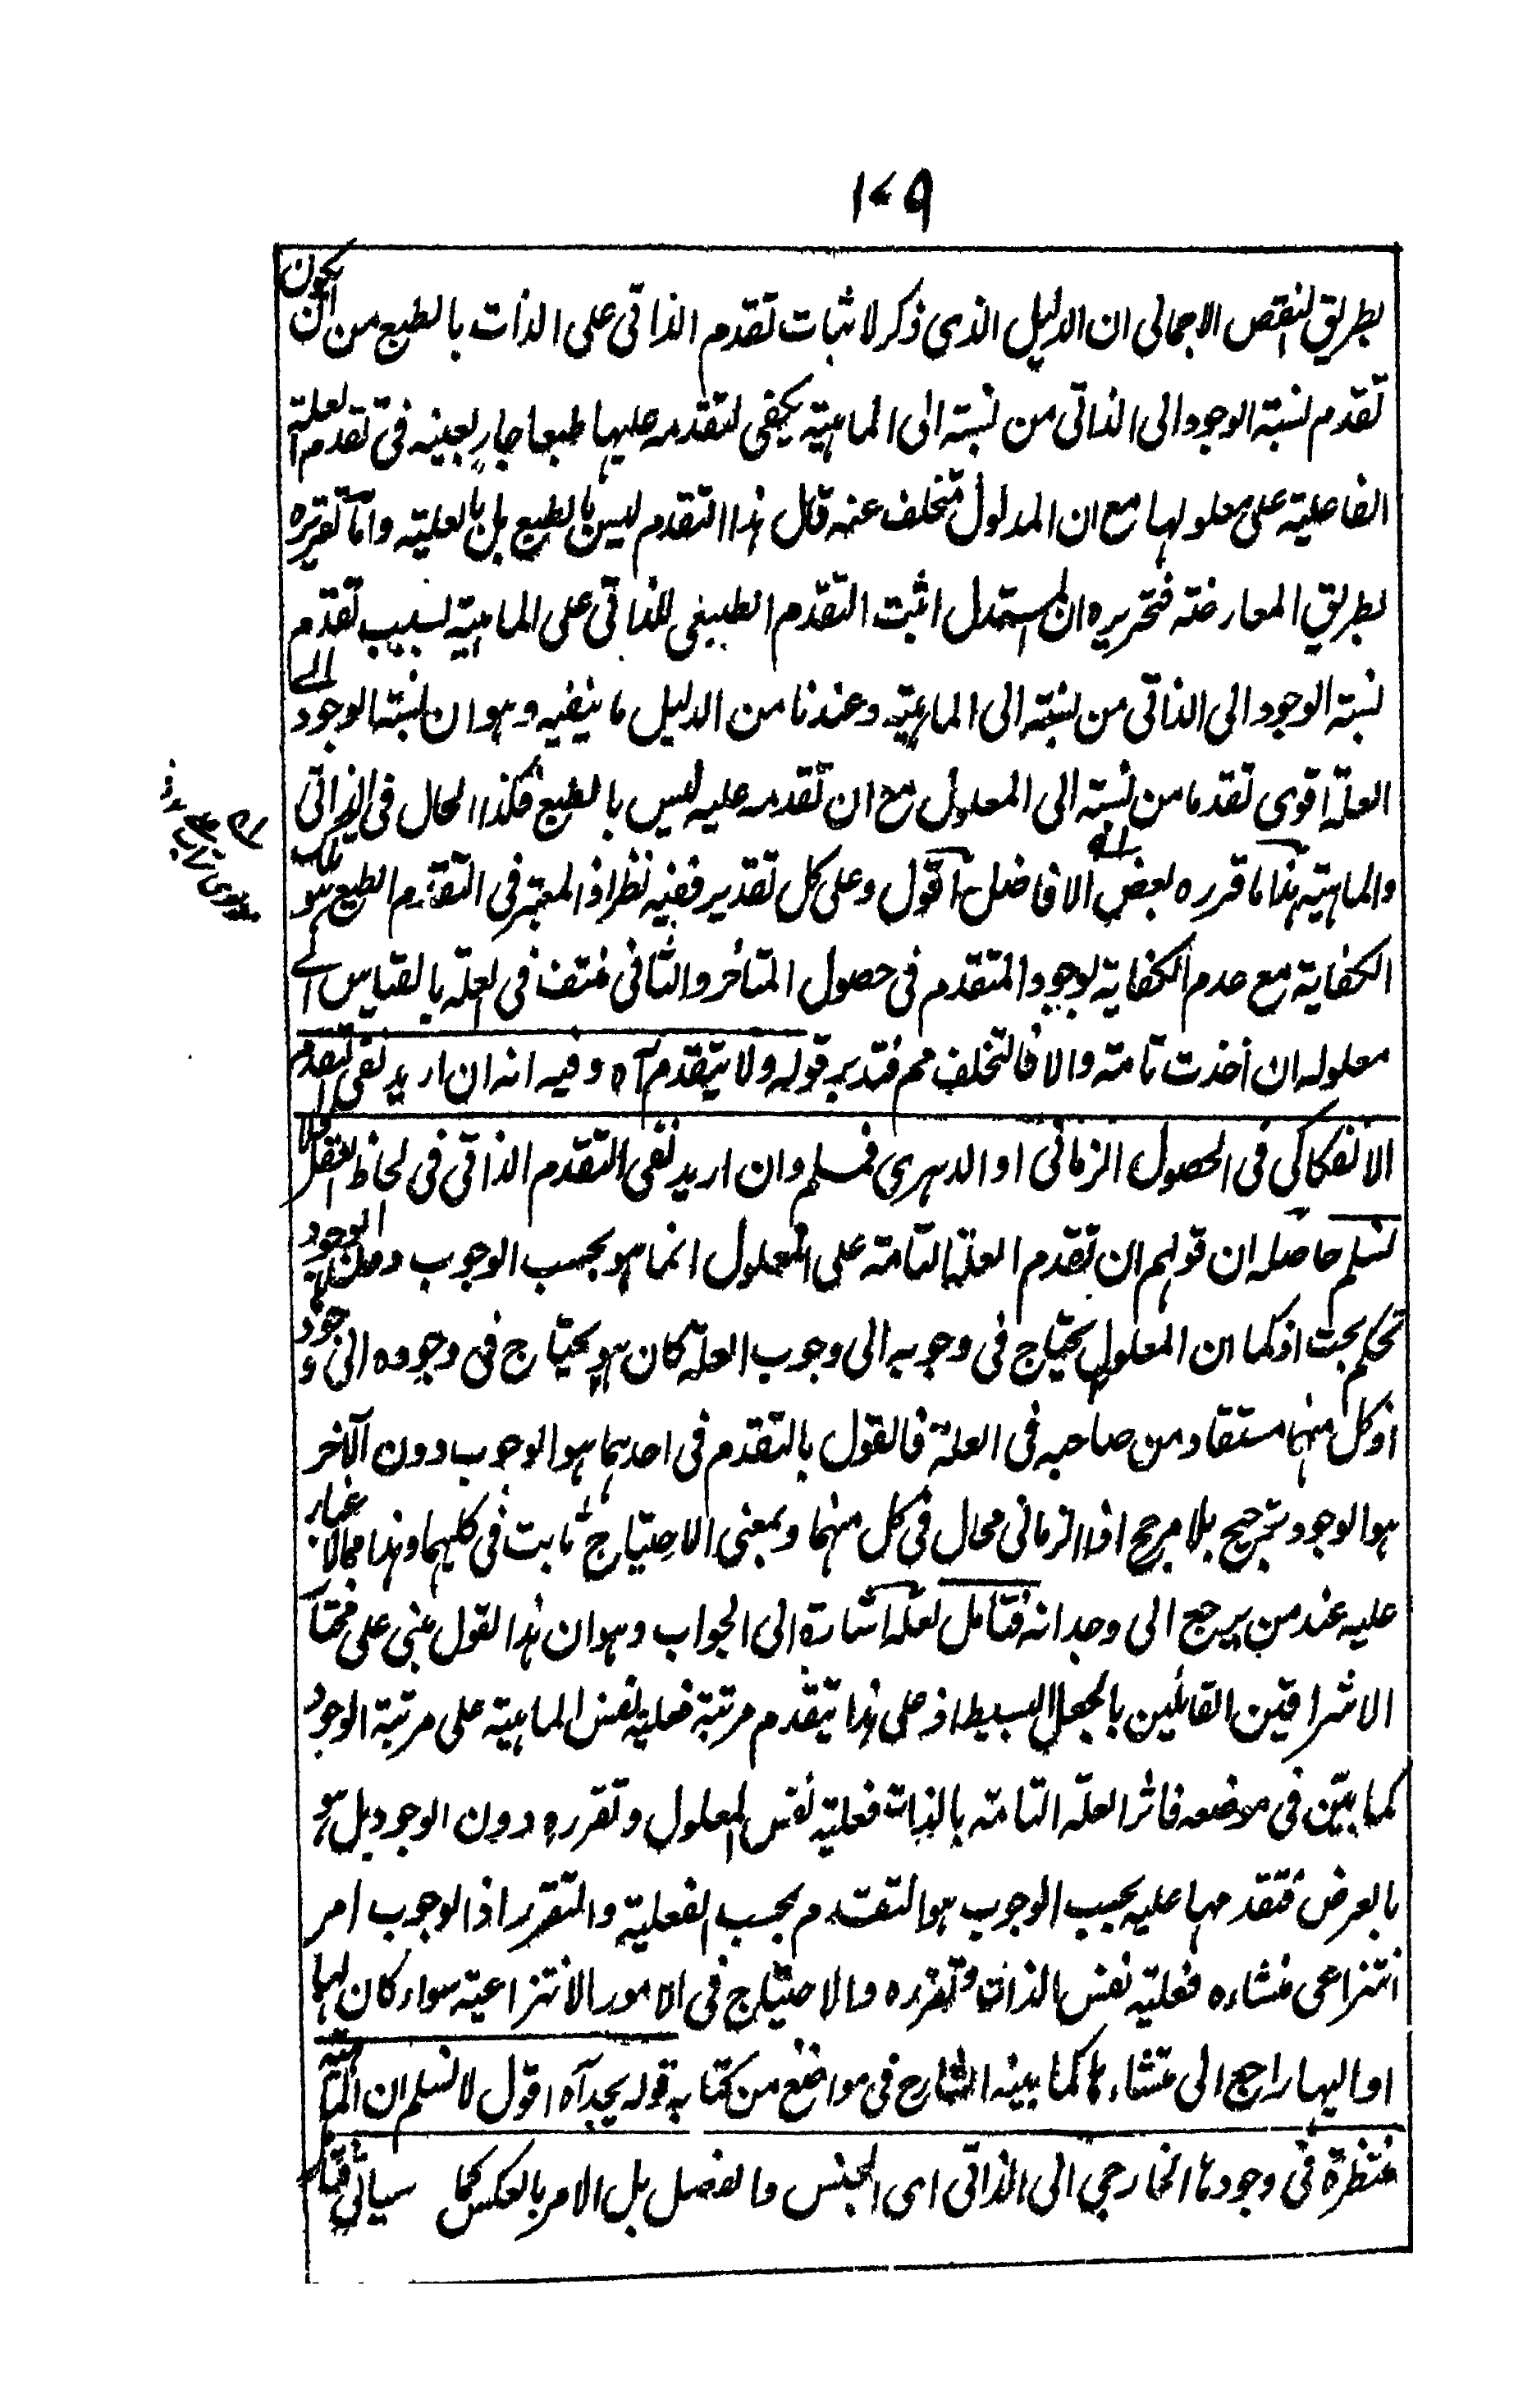 ١٧٩
بطريق النقض الاجمالى ان الدليل الذى ذكر لاثبات تقدم الذاتى على الذات بالطبع من ان يكون
تقدم نسبة الوجود الى الذاتى من نسبة الى الماهية يكفى لتقدمه عليها طبعا جارٍ بعينه فى تقدم العلة
الفاعلية على معلولها مع ان المدلول متخلف عنه قال هذا التقدم ليس بالطبع بل بالعلية واما تقريره
بطريق المعارضة فتحريره ان المستدل اثبت التقدم الطبيعى للذاتى على الماهية بسبب تقدم
نسبة الوجود الى الذاتى من نسبته الى الماهية وعندنا من الدليل ما ينفيه وهو ان نسبة الوجود الى
العلة اقوى تقدما من نسبته الى المعلول مع ان تقدمه عليه ليس بالطبع فكذا الحال فى الذاتى
والماهية هذا ما قرره بعض الافاضل اقول وعلى كل تقدير ففيه نظر اذ المعتبر فى التقدم الطبع هو تلك
الكفاية مع عدم الكفاية لوجود المتقدم فى حصول المتاخر والثانى منتف فى العلة بالقياس الى
معلوله ان أخذت تامة والا فالتخلف مم فتدبر قوله ولا يتقدم آه وفيه انه ان اريد نفى التقدم
الانفكاكى فى الحصول الزمانى او الدهرى فمسلم وان اريد نفى التقدم الذاتى فى لحاظ العقل فلا
نسلم حاصله ان قولهم ان تقدم العلة التامة على المعلول انما هو بحسب الوجوب دون الوجود
تحكم بحت اذ كما ان المعلول يحتاج فى وجوبه الى وجوب العلة كان هو يحتاج فى وجوده الى وجود
اذ كل منهما مستفاد من صاحبه فى العلة فالقول بالتقدم فى احدهما هو الوجوب دون الآخر
هو الوجود ترجيح بلا مرجح اذ الزمانى محال فى كل منهما وبمعنى الاحتياج ثابت فى كليهما وهذا مما لا غبار
عليه عند من يرجع الى وجدانه فتأمل لعله اشارة الى الجواب وهو ان هذا القول مبنى على مختار
الاشراقيين القائلين بالجعل البسيط اذ على هذا يتقدم مرتبة فعلية نفس الماهية على مرتبة الوجود
كما بيّن فى موضعه فاثر العلة التامة بالذات فعلية نفس المعلول وتقرره دون الوجود بل هو
بالعرض فتقدمها عليه بحسب الوجوب هو التقدم بحسب الفعلية والتقرر اذ الوجوب امر
انتزاعى منشاءه فعلية نفس الذات وتقرره والاحتياج فى الامور الانتزاعية سواء كان لها
او اليها راجع الى منشاءها كما بينه الشارح فى مواضع من كتابه قوله يجد آه اقول لا نسلم ان الماهية
منتظرة فى وجودها الخارجى الى الذاتى اى الجنس والفصل بل الامر بالعكس كما سيأتى